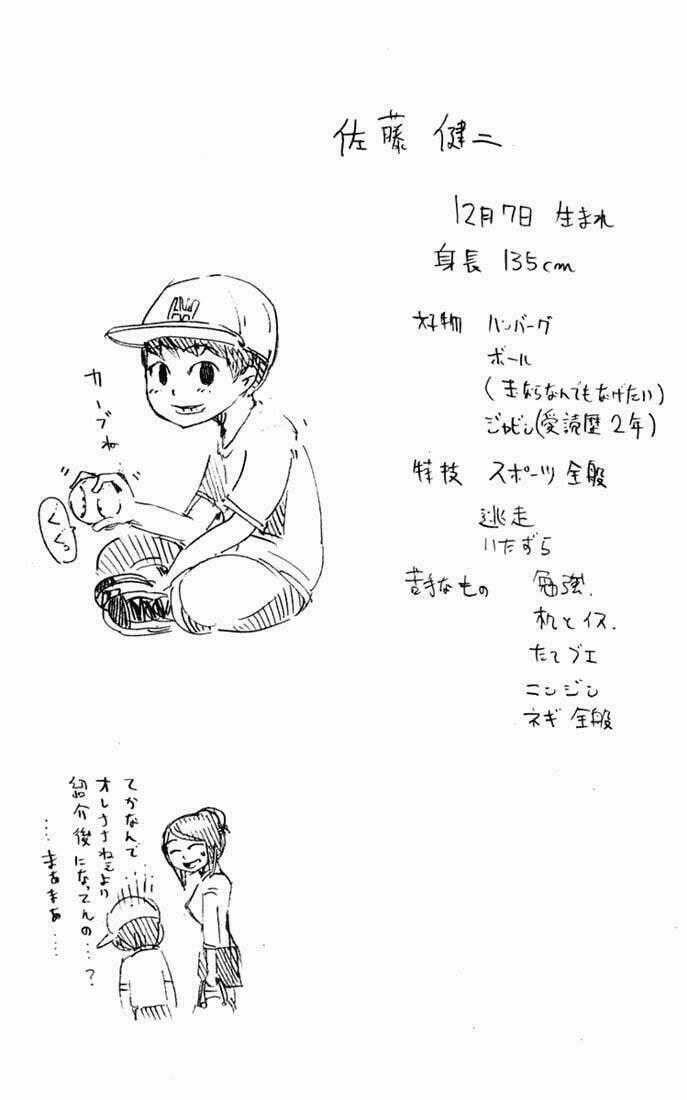 佐藤 健二
12月7日 生まれ
身長 135cm
好物 ハンバーグ
ボール
(玉ならなんでもなげたい)
ジャビン(愛読歴2年)
特技 スポーツ全般
逃走
いたずら
苦手なもの 勉強.
机とイス.
たてブエ
ニンジン
ネギ全般
カーブね
ぐぐっ
てかなんで
オレささねえより
紹介後になってんの…?
…まぁまぁ……